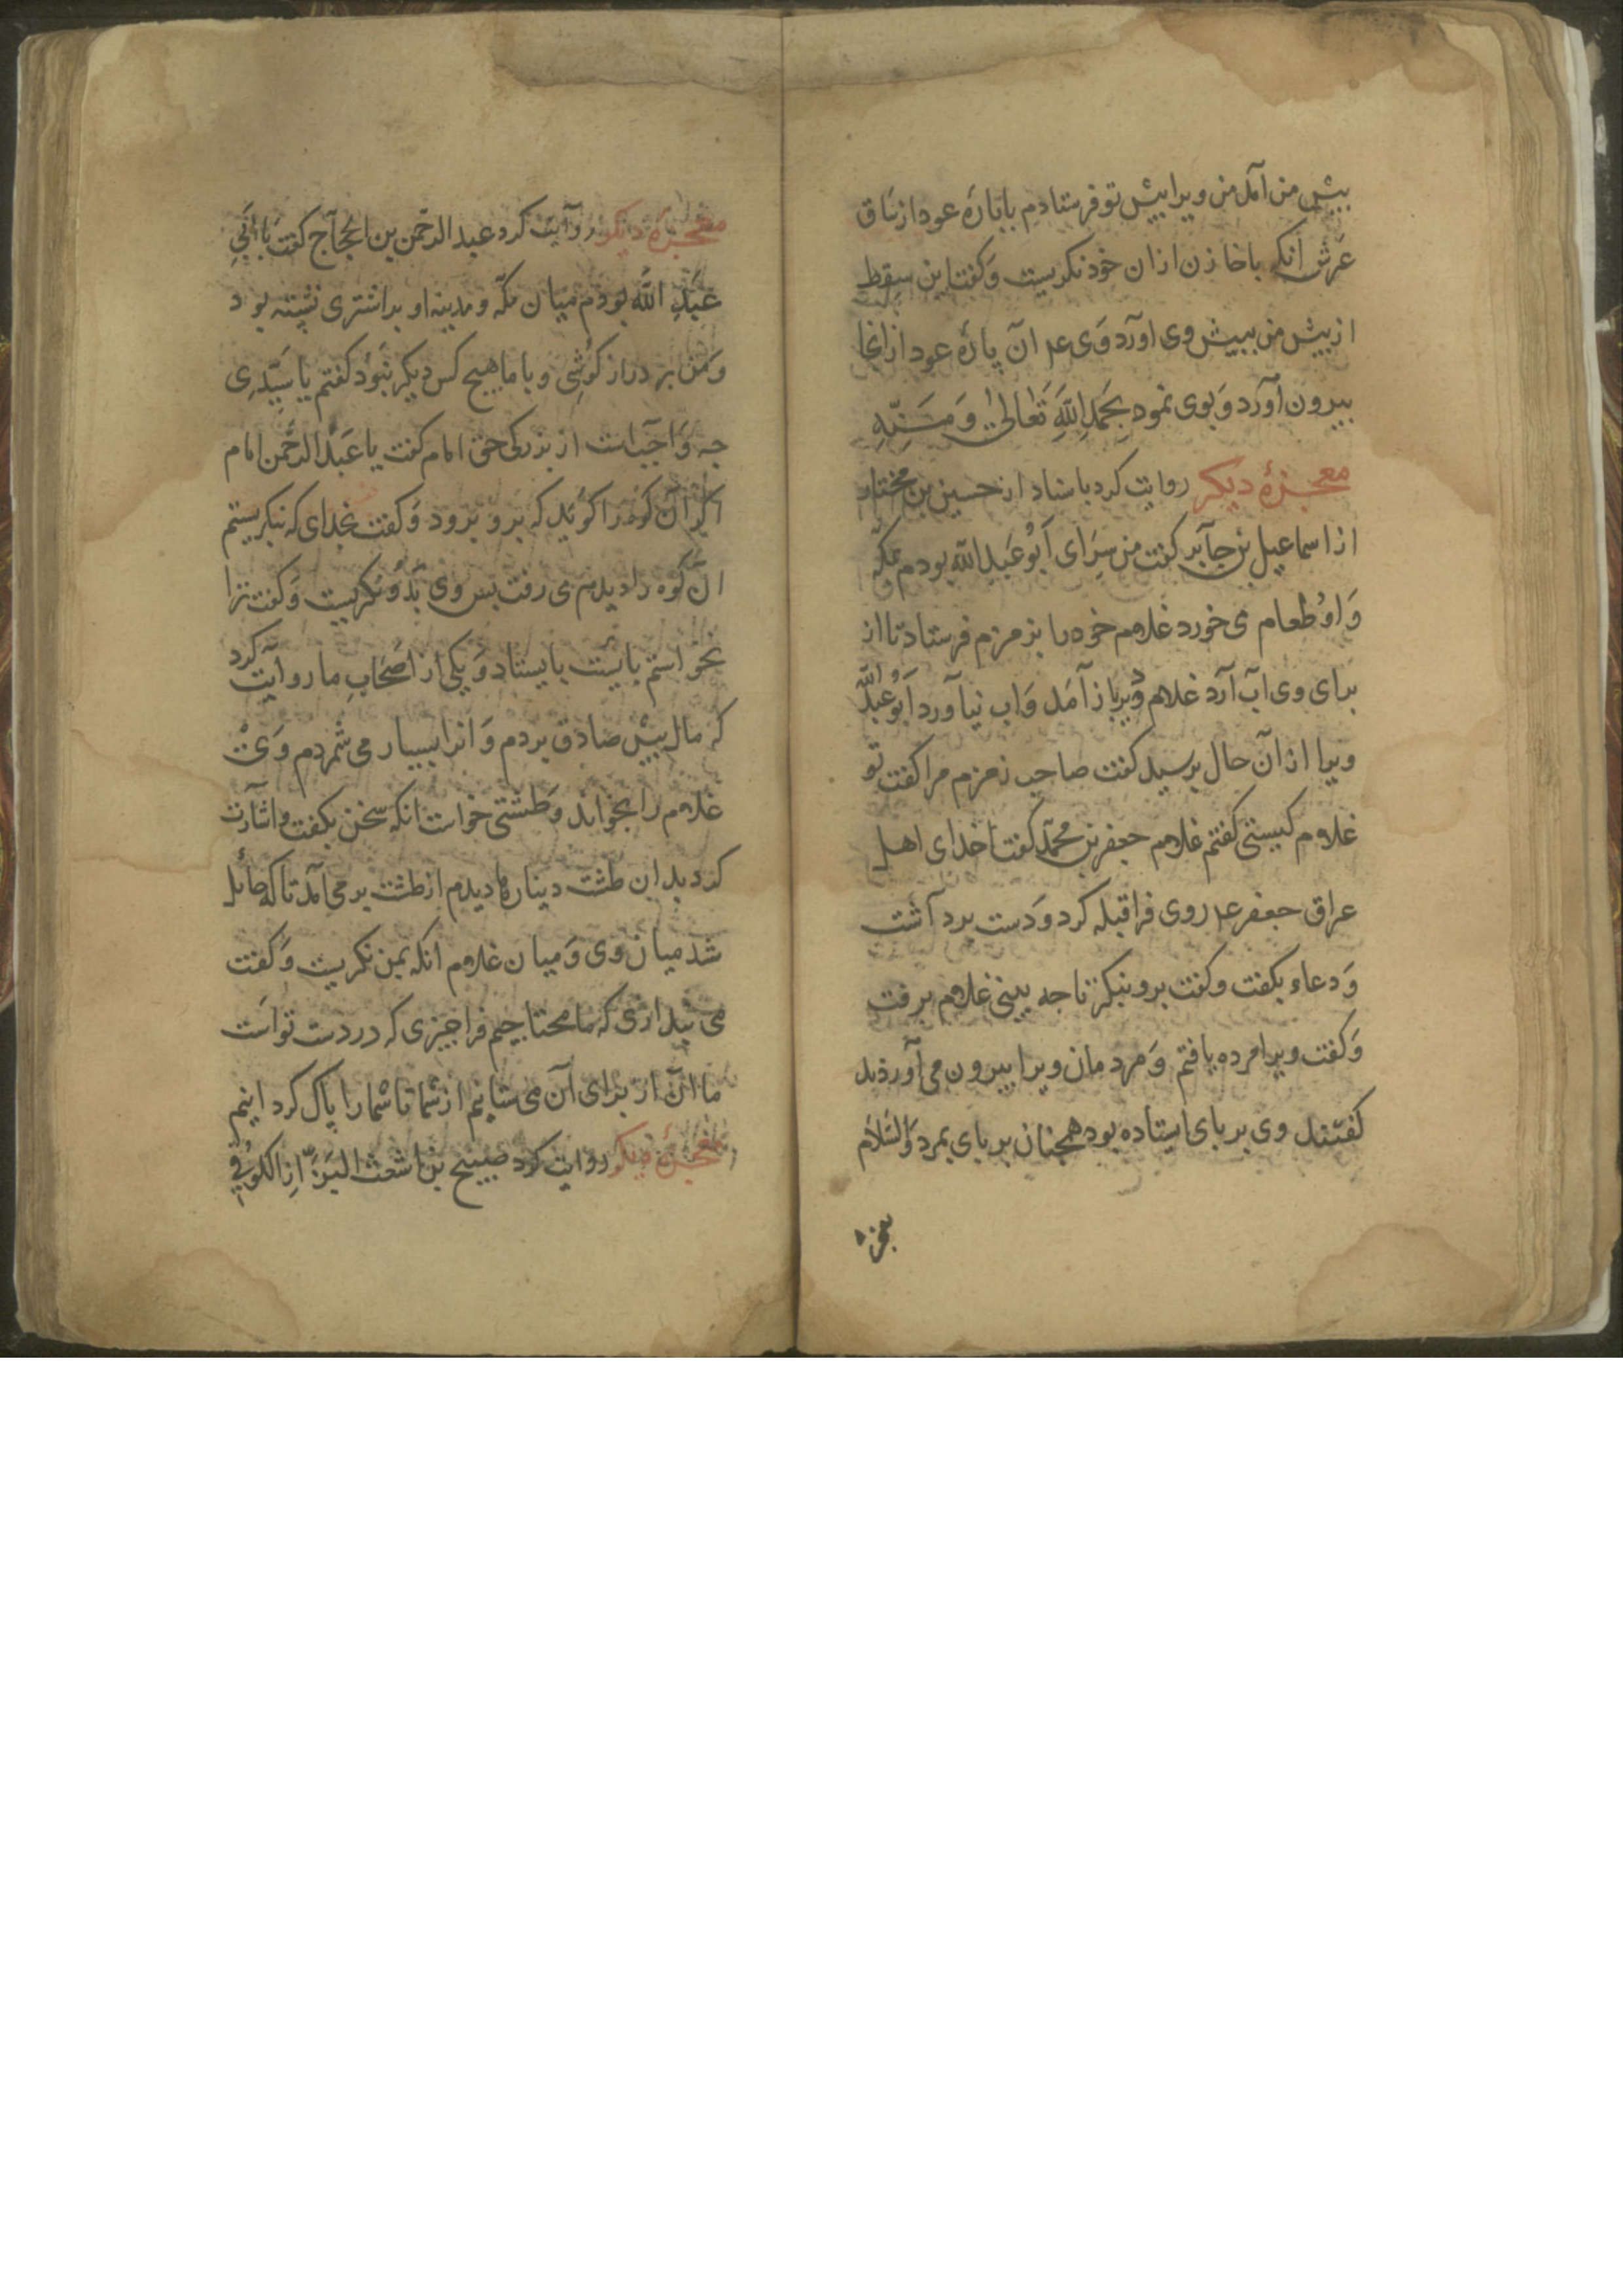 بیش من آمد من ویرا بیش تو فرستادم با باره عود از ساق
عرش انکه با خازن ازان خود نکریست و کفت این سقط
از بیش من ببیش وی اورد وی ع‍ ان پاره عود از انجا
بیرون آورد و بوی نمود بحمد الله تعالی و منه
معجزهٔ دیکر روایت کرد باسناد از حسین بن مختار
از اسماعیل بن جابر کفت من بسرای ابو عبد الله بودم بمکه
و او طعام می خورد غلام خود را بزمزم فرستاد تا از
برای وی اب آرد غلام ویرا باز آمد و اب نیاورد ابو عبد الله
ویرا از آن حال برسید کفت صاحب زمزم مرا کفت تو
غلام کیستی کفتم غلام جعفر بن محمد کفت خدای اهل
عراق جعفر ع‍ روی فرا قبله کرد و دست برداشت
و دعاء بکفت و کفت برو بنکر تا جه بینی غلام برفت
و کفت ویرا مرده یافتم و مردمان ویرا بیرون می آوردند
کفتند وی بر بای ایستاده بود همجنان بر بای بمرد والسلام
معجزه
معجزهٔ دیکر روایت کرد عبد الرحمن بن الحجاج کفت با ابی
عبد الله بودم میان مکه و مدینه او بر اشتری نشسته بود
و من بر دراز کوشی و با ما هیج کس دیکر نبود کفتم یا سیدی
جه واجب است از بزرکی حق امام کفت یا عبد الرحمن امام
اکر آن کوه را کوید که برو برود و کفت بخدای که بنکریستم
ان کوه را دیدم می رفت بس وی بدو نکریست و کفت ترا
نخواستم بایست بایستاد و یکی از اصحاب ما روایت کرد
که مال بیش صادق بردم و انرا بسیار می شمردم وی
غلام را بخواند و طشتی خواست انکه سخن بکفت و اشارت
کرد بدان طشت دینارها دیدم از طشت بر می آمد تا که حائل
شد میان وی و میان غلام انکه بمن نکریست و کفت
می بنداری که ما محتاجیم فرا جیزی که در دست تو است
ما ان از برای آن می ستانیم از شما تا شما را پاک کردانیم
معجزهٔ دیکر روایت کرد صبیح بن اشعث الکوفی